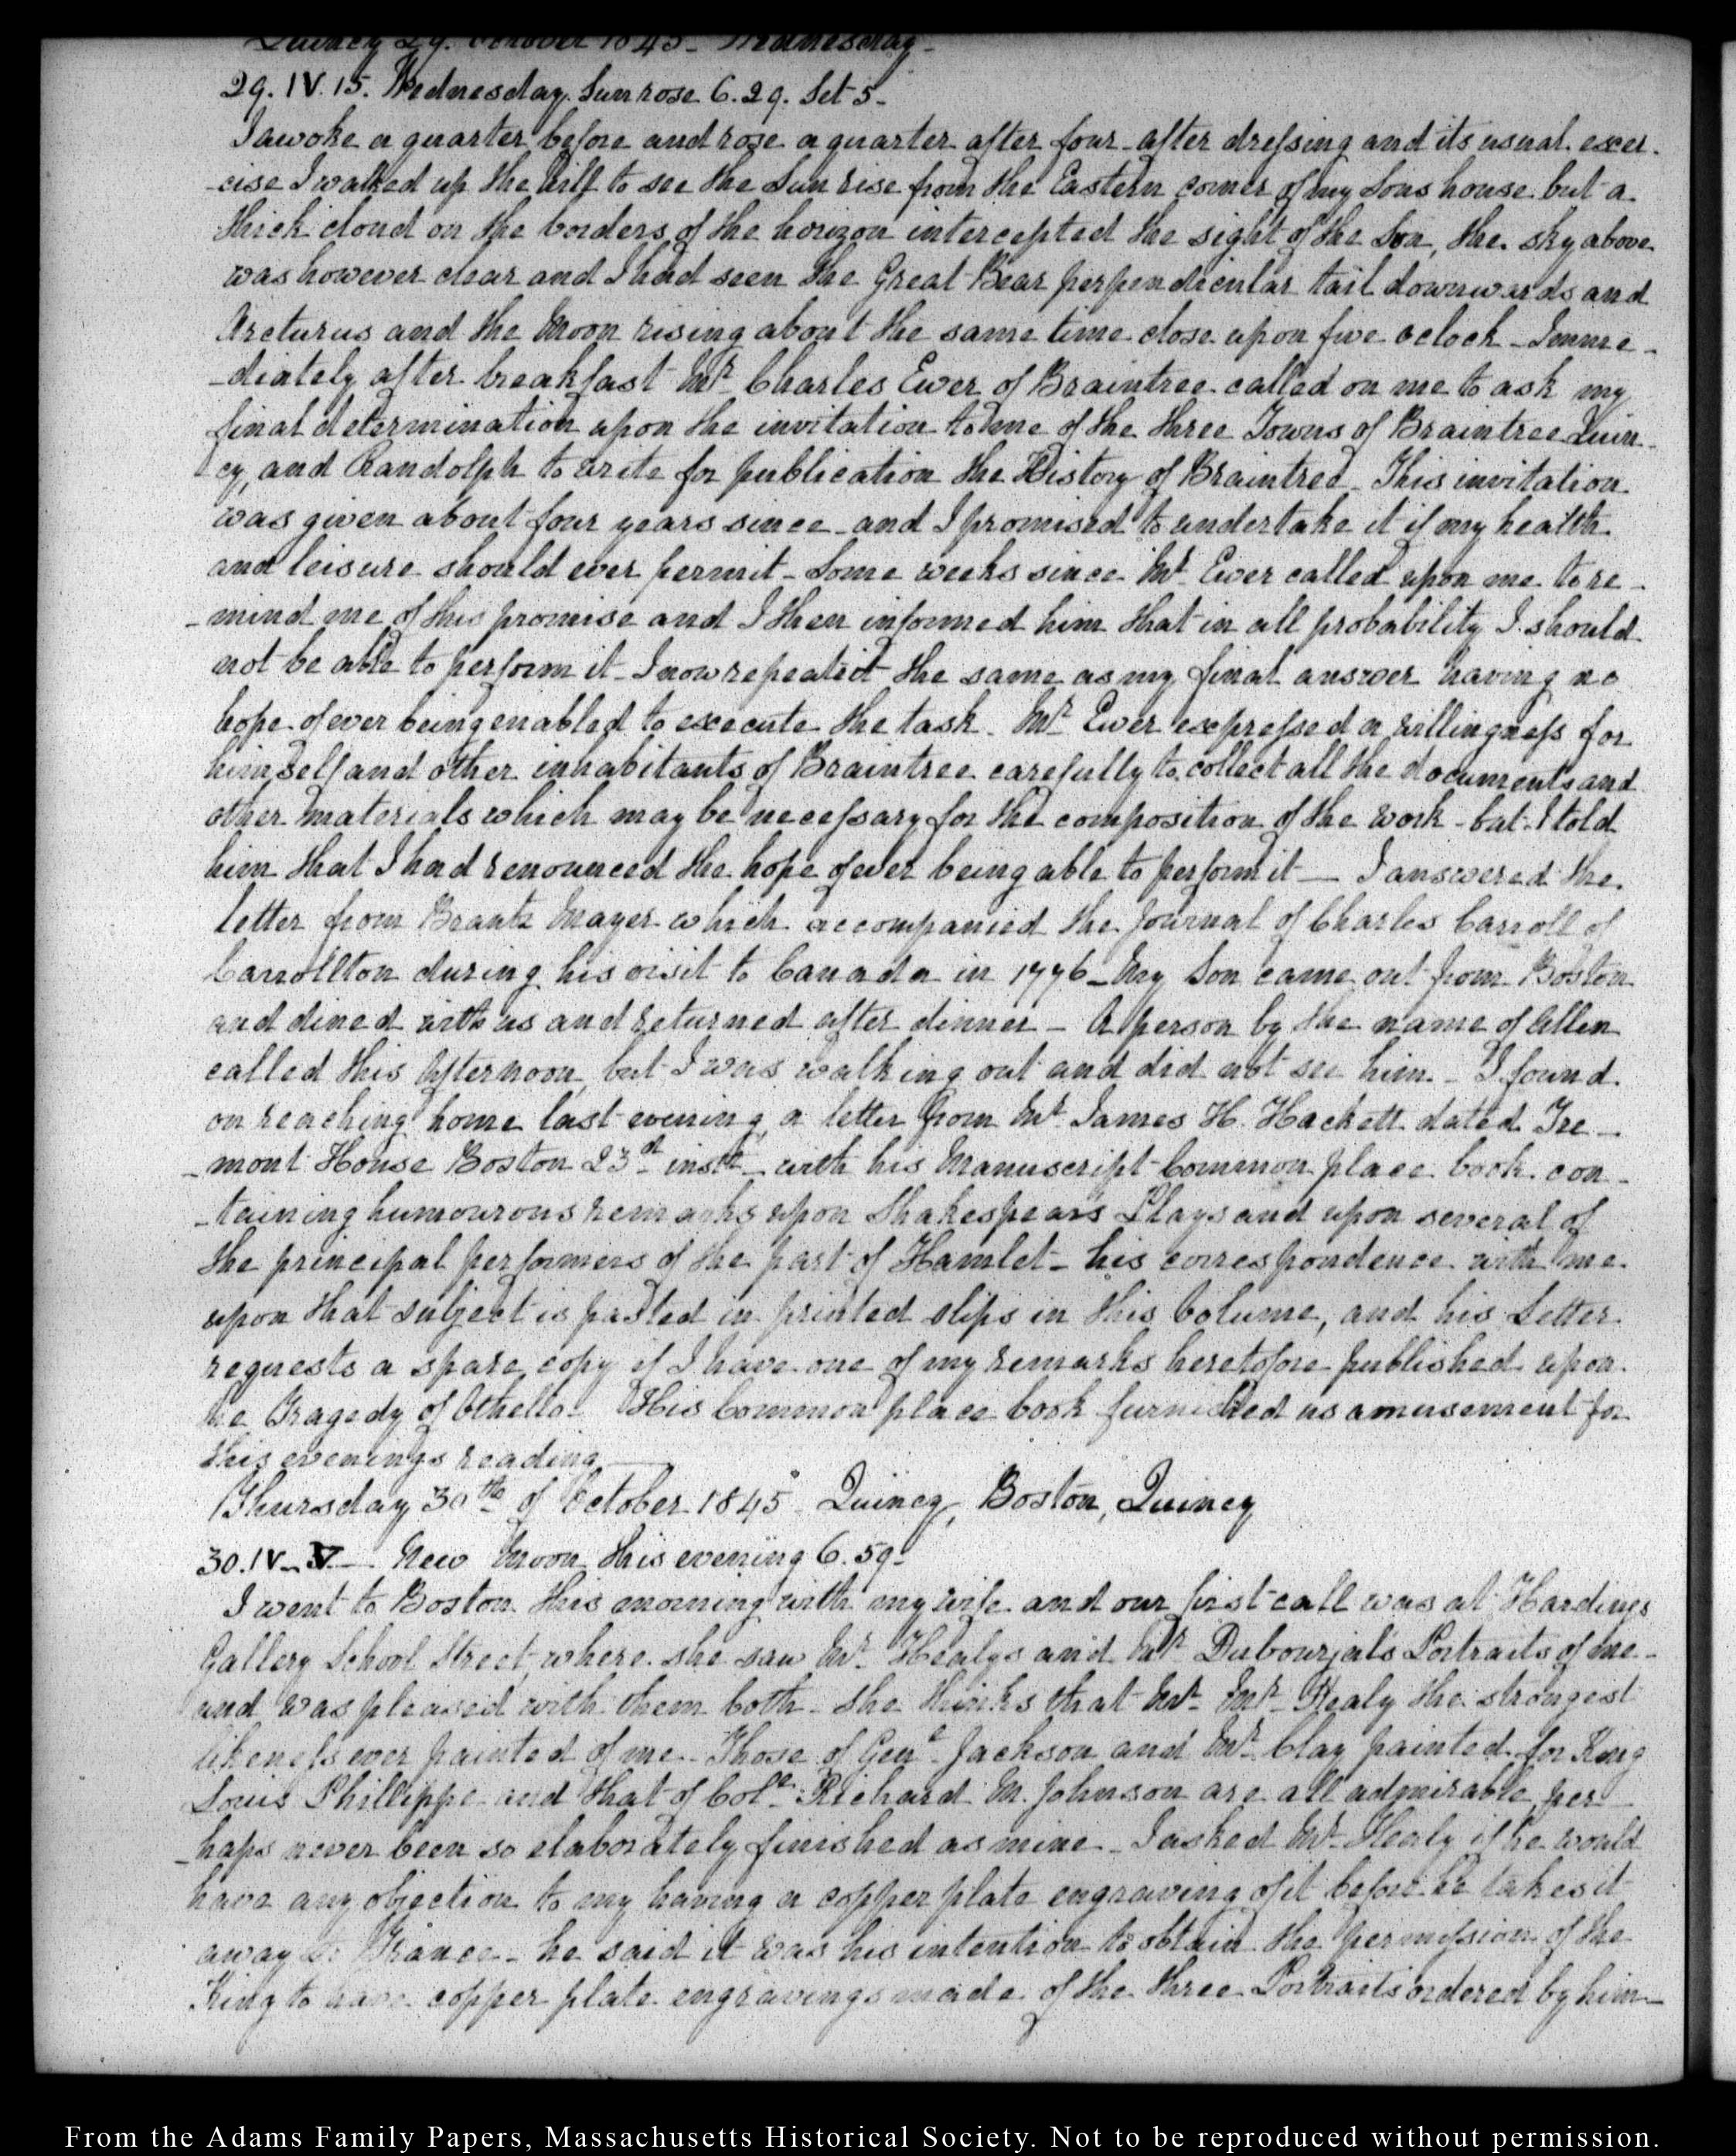 Quincy 29. October 1845 - Wednesday -
29. IV. 15. Wednesday. Sun rose 6.29. Set 5 -
I awoke a quarter before and rose a quarter after four - after dressing and its usual exer-
-cise I walked up the hill to see the Sun rise from the Eastern corner of my Sons house but a
thick cloud on the borders of the horizon intercepted the sight of the Son, the sky above
was however clear and I had seen the Great Bear perpendicular tail downwards and
Arcturus and the Moon rising about the same time close upon five oclock - Imme-
-diately after breakfast Mr. Charles Ewer of Braintree called on me to ask my
final determination upon the invitation to me of the three Towns of Braintree Quin-
cy, and Randolph to write for publication the History of Braintree - This invitation
was given about four years since - and I promised to undertake it if my health
and leisure should ever permit - Some weeks since Mr. Ewer called upon me to re-
-mind me of this promise and I then informed him that in all probability I should
not be able to perform it - I now repeated the same as my final answer having no
hope of ever being enabled to execute the task - Mr. Ewer expressed a willingness for
himself and other inhabitants of Braintree carefully to collect all the documents and
other materials which may be necessary for the composition of the work - but I told
him that I had renounced the hope of ever being able to perform it — I answered the
letter from Brantz Mayer which accompanied the Journal of Charles Carroll of
Carrollton during his visit to Canada in 1776 - My Son came out from Boston
and dined with us and returned after dinner - A person by the name of Allen
called this afternoon, but I was walking out and did not see him - I found
on reaching home last evening, a letter from Mr. James H. Hackett dated Tre-
-mont House Boston 23d instt. - with his Manuscript Common place book con-
-taining humourous remarks upon Shakespears Plays and upon several of
the principal performers of the part of Hamlet - his correspondence with me
upon that subject is pasted in printed slips in this Volume, and his Letter
requests a spare copy if I have one of my remarks heretofore published upon
the Tragedy of Othello - His Common place book furnished us amusement for
this evenings reading —
Thursday 30th of October 1845 - Quincy, Boston, Quincy
30. IV - V — New Moon this evening 6.59 -
I went to Boston this morning with my wife and our first call was at Hardings
Gallery School Street, where she saw Mr. Healys and Mr. Dubourjals Portraits of me -
and was pleased with them both - She thinks that Mr. Mr. Healy the strongest
likeness ever painted of me - Those of Genl. Jackson and Mr. Clay painted for King
Louis Phillippe and that of Coll. Richard M. Johnson are all admirable, per-
-haps never been so elaborately finished as mine - I asked Mr. Healy if he would
have any objection to my having a copper plate engraving of it before he takes it
away to France - he said it was his intention to obtain the permission of the
King to have copper plate engravings made of the three Portraits ordered by him -
From the Adams Family Papers, Massachusetts Historical Society. Not to be reproduced without permission.